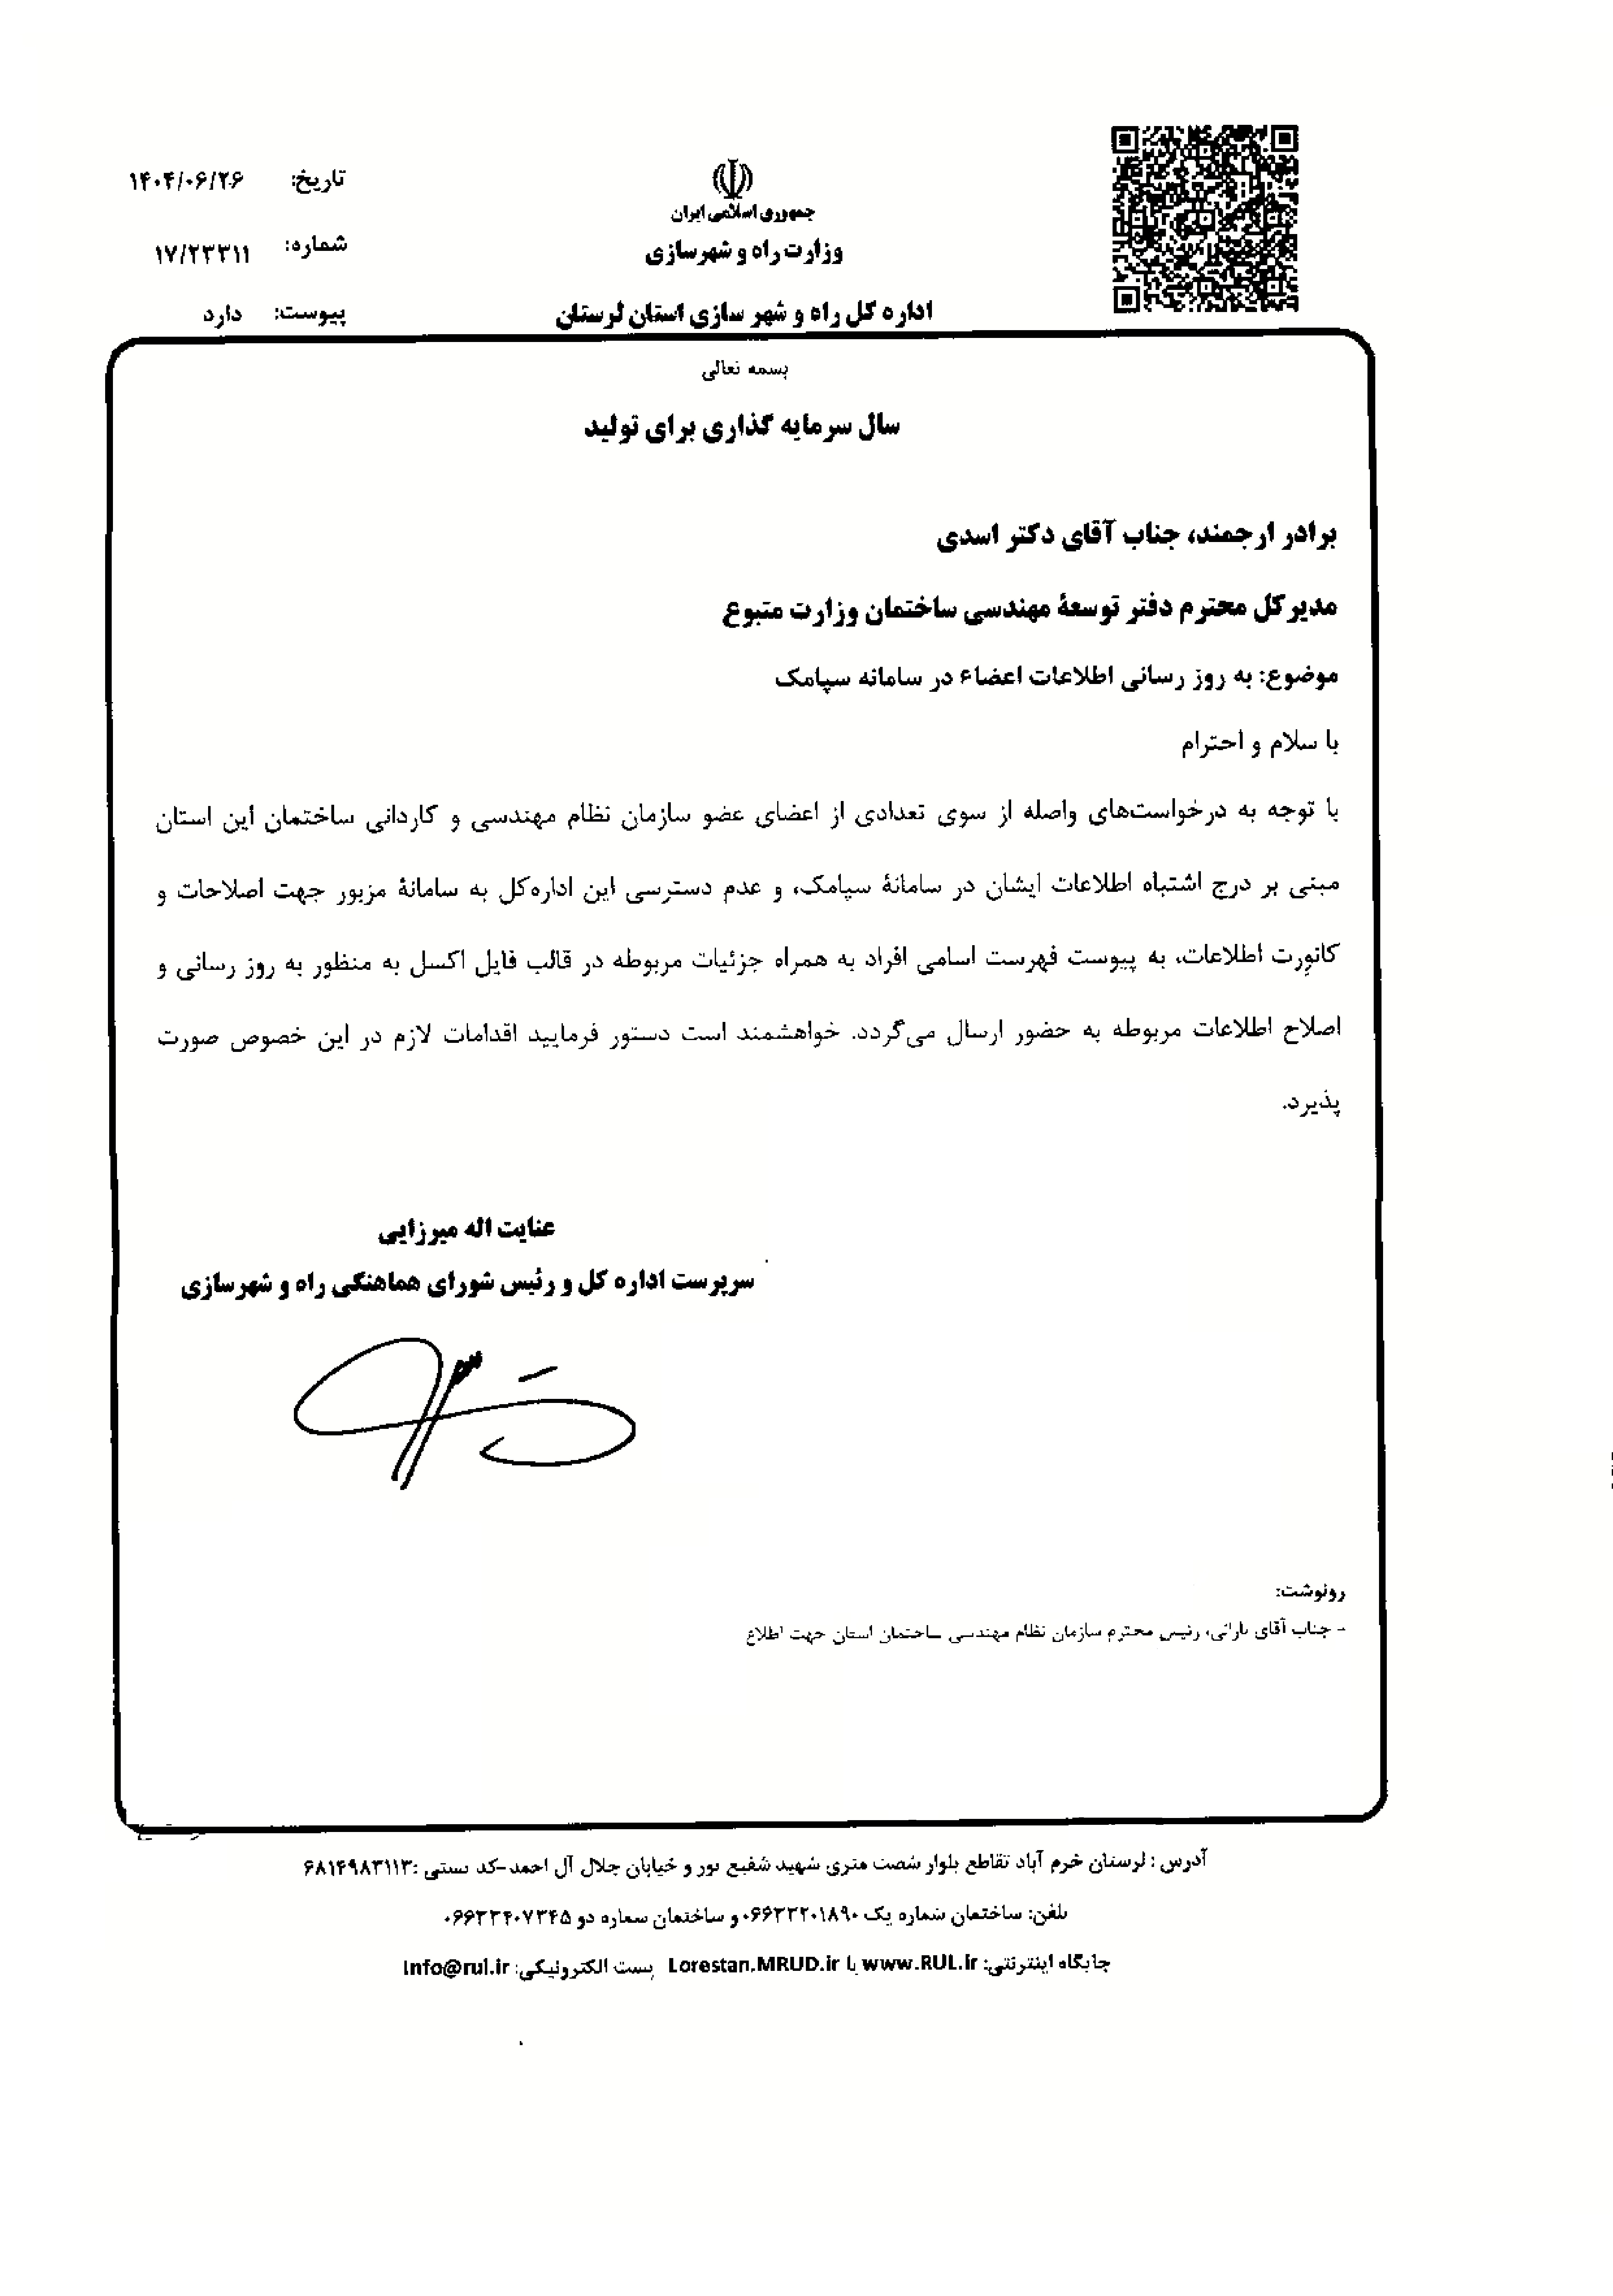 جمهوری اسلامی ایران
وزارت راه و شهرسازی
اداره کل راه و شهر سازی استان لرستان
تاریخ: ۱۴۰۴/۰۶/۲۶
شماره: ۱۷/۲۳۳۱۱
پیوست: دارد
بسمه تعالی
سال سرمایه گذاری برای تولید
برادر ارجمند، جناب آقای دکتر اسدی
مدیرکل محترم دفتر توسعهٔ مهندسی ساختمان وزارت متبوع
موضوع: به روز رسانی اطلاعات اعضاء در سامانه سپامک
با سلام و احترام
با توجه به درخواست‌های واصله از سوی تعدادی از اعضای عضو سازمان نظام مهندسی و کاردانی ساختمان این استان
مبنی بر درج اشتباه اطلاعات ایشان در سامانهٔ سپامک، و عدم دسترسی این اداره‌کل به سامانهٔ مزبور جهت اصلاحات و
کانوِرت اطلاعات، به پیوست فهرست اسامی افراد به همراه جزئیات مربوطه در قالب فایل اکسل به منظور به روز رسانی و
اصلاح اطلاعات مربوطه به حضور ارسال می‌گردد. خواهشمند است دستور فرمایید اقدامات لازم در این خصوص صورت
پذیرد.
عنایت اله میرزایی
سرپرست اداره کل و رئیس شورای هماهنگی راه و شهرسازی
رونوشت:
- جناب آقای بارانی، رئیس محترم سازمان نظام مهندسی ساختمان استان جهت اطلاع
آدرس : لرستان خرم آباد تقاطع بلوار شصت متری شهید شفیع پور و خیابان جلال آل احمد-کد پستی :۶۸۱۴۹۸۳۱۱۳
تلفن: ساختمان شماره یک ۰۶۶۳۳۲۰۱۸۹۰ و ساختمان شماره دو ۰۶۶۳۳۴۰۷۳۴۵
جایگاه اینترنتی: www.RUL.ir یا Lorestan.MRUD.ir پست الکترونیکی: Info@rul.ir